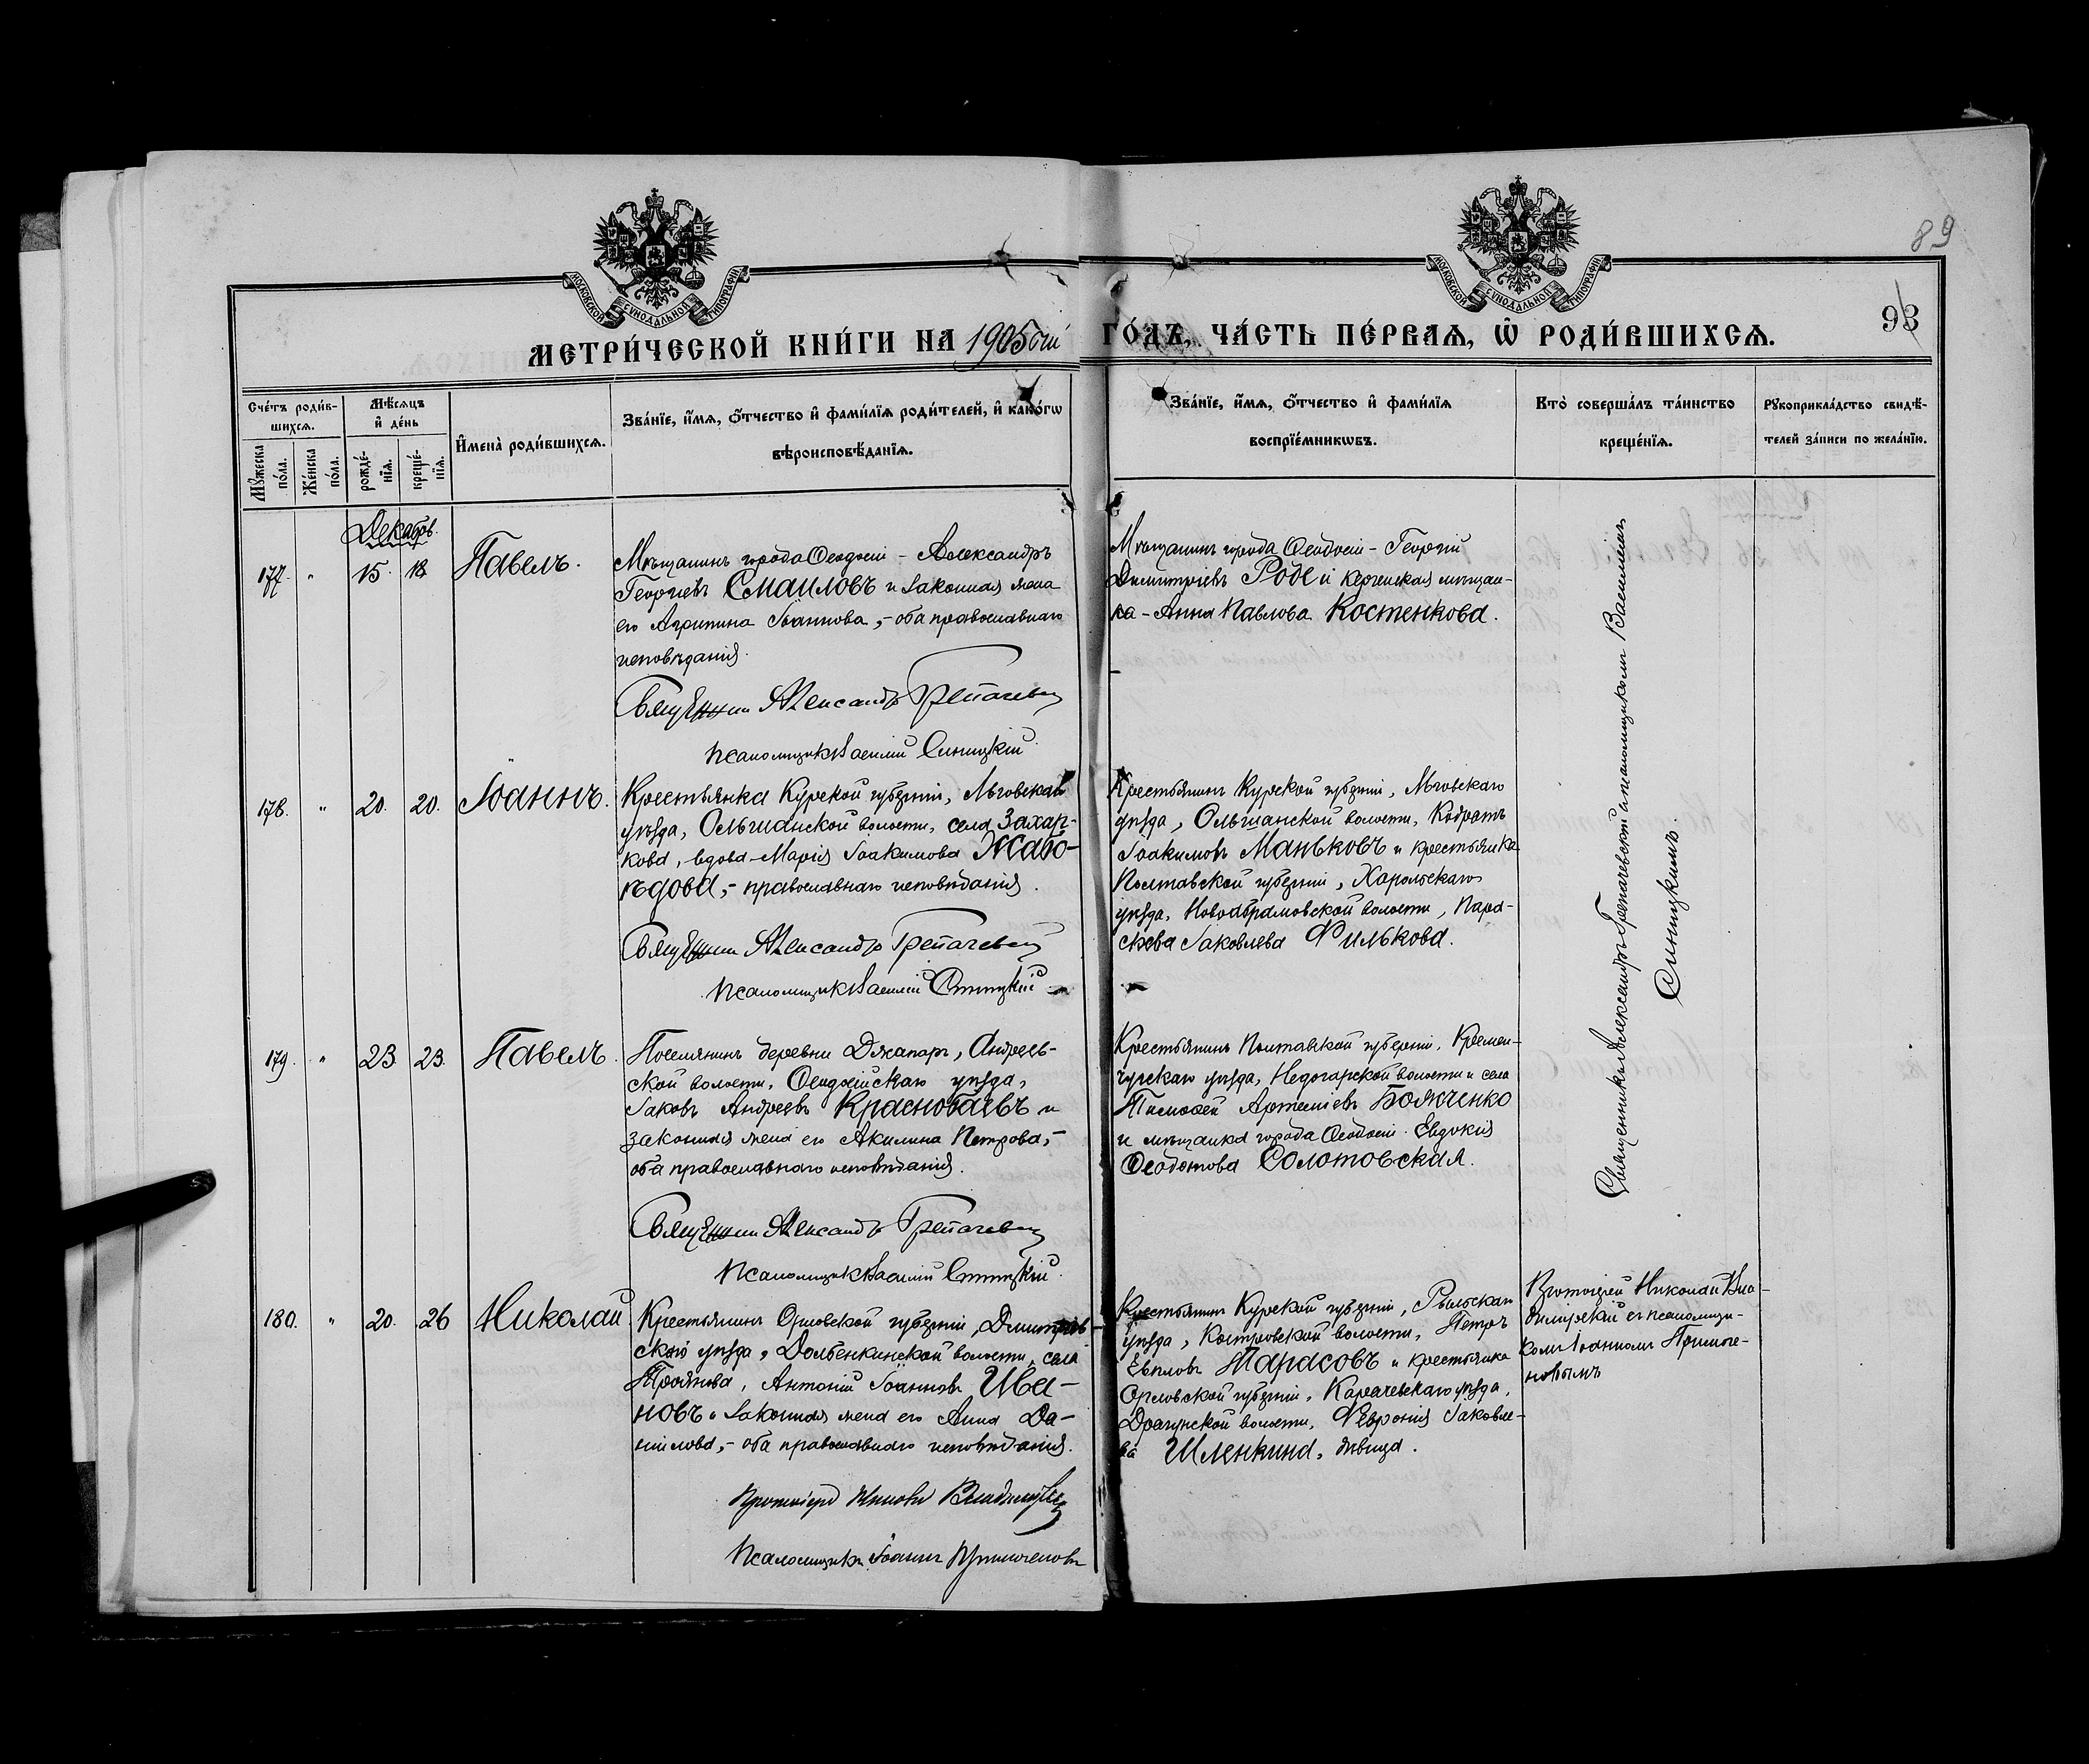 89
93
МОСКОВСКОЙ СѴНОДАЛЬНОЙ ТИПОГРАФІИ
МОСКОВСКОЙ СѴНОДАЛЬНОЙ ТИПОГРАФІИ
МЕТРИ́ЧЕСКОЙ КНИ́ГИ НА 1905ый ГО́ДЪ, ЧА́СТЬ ПЕ́РВАѦ, Ѿ РОДИ́ВШИХСѦ.
Счéтъ роди́в-
шихсѧ.
Мꙋ́жеска по́ла.
Же́нска по́ла.
Мѣ́сѧцъ
и҆ де́нь
рожде́-
нїѧ.
креще́-
нїѧ.
И҆мена̀ роди́вшихсѧ.
Зва́нїе, и҆́мѧ, ѻ҆́тчество и҆ фами́лїѧ роди́телей, и҆ како́гѡ
вѣроисповѣ́данїѧ.
Зва́нїе, и҆́мѧ, ѻ҆́тчество и҆ фами́лїѧ
воспрїе́мникѡвъ.
Кто̀ соверша́лъ та́инство
креще́нїѧ.
Рꙋкоприкла́дство свидѣ́-
телей за́писи по жела́нїю.
Декабрь.
177. " 15. 18. Павелъ.
Мѣщанинъ города Ѳеодосіи – Александръ
Георгіевъ Смаиловъ и законная жена
его Агрипина Іоаннова, – оба православнаго
исповѣданія.
Священникъ Александръ
Псаломщикъ Василій Синицкій.
Мѣщанинъ города Ѳеодосіи – Георгій
Димитріевъ Роде и керченская мѣщан-
ка – Анна Павлова Костенкова.
178. " 20. 20. Іоаннъ.
Крестьянка Курской губерніи, Льговскаго
уѣзда, Ольшанской волости, села Захар-
кова, вдова – Марія Іоакимова Жабо-
ѣдова, – православнаго исповѣданія.
Священникъ Александръ
Псаломщикъ Василій Синицкій
Крестьянинъ Курской губерніи, Льговскаго
уѣзда, Ольшанской волости, Кодратъ
Іоакимовъ Маньковъ и крестьянка
Полтавской губерніи, Хорольскаго
уѣзда, Новоаврамовской волости, Пара-
скева Іаковлева Филькова.
179. " 23 23. Павелъ.
Поселянинъ деревни Джапаръ, Андреев-
ской волости, Ѳеодосійскаго уѣзда,
Іаковъ Андреевъ Краснобаевъ и
законная жена его Акилина Петрова, –
оба православнаго исповѣданія.
Священникъ Александръ
Псаломщикъ Василій Синицкій.
Крестьянинъ Полтавской губерніи, Кремен-
чугскаго уѣзда, Недогарской волости и села
Тимоѳей Артеміевъ Божченко
и мѣщанка города Ѳеодосіи Евдокія
Ѳеодотова Солотовская.
Священникъ Александръ съ псаломщикомъ Василіемъ
Синицкимъ.
180. " 20. 26 Николай
Крестьянинъ Орловской губерніи, Дмитров-
скаго уѣзда, Долбенкинской волости, села
Троянова, Антоній Іоанновъ Ива-
новъ и законная жена его Анна Да-
ніилова, – оба православнаго исповѣданія.
Протоіерей Николай Владимірскій
Псаломщикъ Іоаннъ
Крестьянинъ Курской губерніи, Рыльскаго
уѣзда, Костровской волости, Петръ
Евпловъ Тарасовъ и крестьянка
Орловской губерніи, Карачевскаго уѣзда,
Драгунской волости, Февронія Іаковле-
ва Шленкина, дѣвица.
Протоіерей Николай Вла-
димірскій съ псаломщи-
комъ Іоанномъ